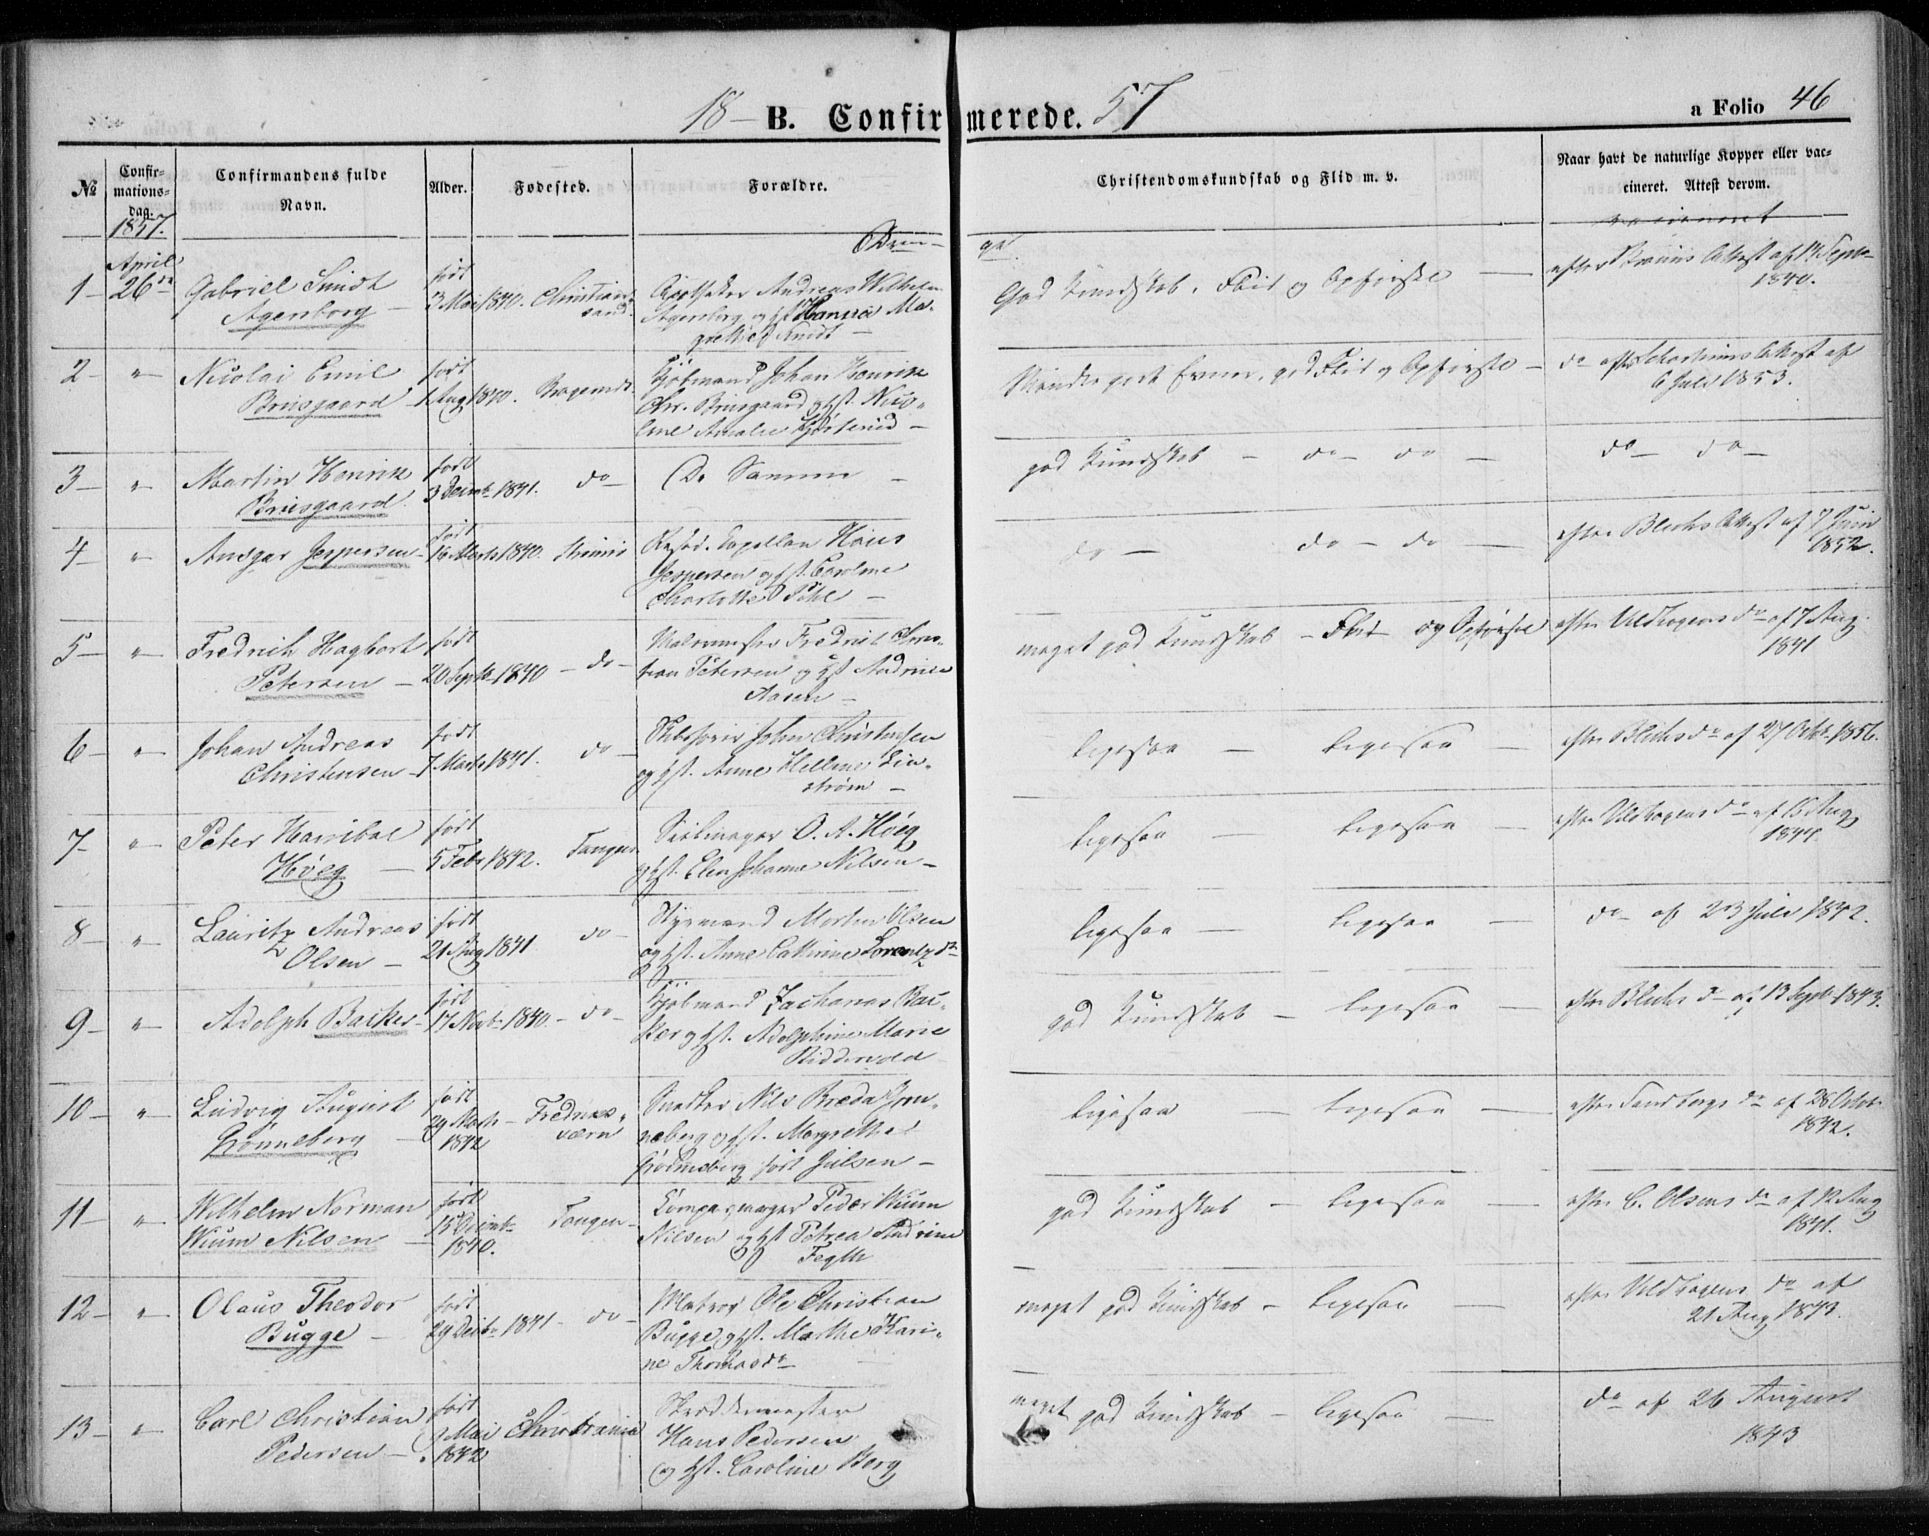 18 — B. Confirmerede. 57
a Folio 46
№
Confirmationsdag.
Confirmandens fulde Navn.
Alder.
Fødested.
Forældre.
Christendomskundskab og Flid m. v.
Naar havt de naturlige Kopper eller vaccineret. Attest derom.
1857.
Dren-
ge
1 — April 26de
Gabriel Smidt
Agerborg —
født
3 Mai 1840.
Christiansand.
Apotheker Andreas Wilhelm
Agerborg og Hst. Hanna Ma-
grethe Smidt —
God Kundskab, Flid og Opførsel —
1840.
2 — "
Nicolai Emil
Bruusgaard
født
1 Aug 1840.
Bragernes.
Kjøbmand Johan Henrik
Chr. Bruusgaard og Hst. Nico-
line Amalie
Mindre gode Evner, god Flid og Opførsel —
do efter Attest af
6 Juli 1853.
3 — "
Martin Henrik
Bruusgaard.
født
3 Decmbr 1841.
do
De Samme —
god Kundskab — do — do —
do — do —
4 — "
Ansgar Jespersen
født
16 Marts 1840.
Strømsø
Resid. Capellan Hans
Jespersen og Hst. Caroline
Charlotte Pihl —
do — do — do —
efter Blichs Attest af 7 Juni
1852.
5 — "
Fredrich Hagbart
Petersen —
født
20 Septbr 1840
— do —
Malermester Fredrik Chris-
tian Petersen og Hst. Andrine
Aasen —
meget god Kundskab — Flid og Opførsel
efter Veldhagens do af 7 Aug.
1841
6 — "
Johan Andreas
Christensen —
født
7 Marts 1841.
do —
John Christensen
og Hst. Anne Helene Lin-
strøm —
ligesaa — ligesaa —
efter Blichs do af 27 Octb. 1856.
7 — "
Peter Hanibal
Høeg —
født
5 Febr 1842.
Tangen
Seilmager O. A. Høeg
og Hst. Elen Johanne Nilsen —
ligesaa — ligesaa —
efter Veldhagens do af 15 Aug
1844.
8 — "
Lauritz Andreas
Olsen —
født
21 Aug 1841
do —
Styrmand Morten Olsen
og Hst. Anne Cathrine Lorentzdr
ligesaa — ligesaa —
do af 23 Juli 1842.
9 — "
Adolph Backer
født
17 Novbr 1840.
— do —
Kjøbmand Zacharias Bac-
ker og Hst. Adolphine Marie
Riddervold
god Kundskab — ligesaa —
efter Blichs do af 13 Septbr 1843.
10 — "
Ludvig August
Grønneberg —
født
29 Marts
1842
Fredriks-
værn
Snedker Nils Breda Grøn-
neberg og Hst. Margrethe
Grønneberg født Julsen —
ligesaa — ligesaa —
efter Sandbergs do af 28 Octob.
1842.
11 — "
Wilhelm Norman
Wium Nilsen —
født
15 Decmbr
1840.
Tangen —
Compasmager Peder Wium
Nilsen og Hst Petrea Andrine
Fegth
god Kundskab — ligesaa —
efter C. Olsens do af 12 Aug
1841.
12 — "
Olaus Theodor
Bugge —
født
29 Decbr 1841
do —
Matros Ole Christian
Bugge og Hst. Marthe Kari-
ne Thomasdr
meget god Kundskab — ligesaa —
efter Veldhagens do af
21 Aug 1843.
13 — "
Carl Christian
Pedersen —
født
9 Mai
1842
Christiania
Skræddermester
Hans Pedersen
og Hst. Caroline Berg
meget god Kundskab — ligesaa —
do af 26 August
1843